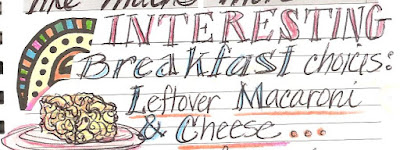 more
INTERESTING
Breakfast choices:
Leftover Macaroni
& Cheese...